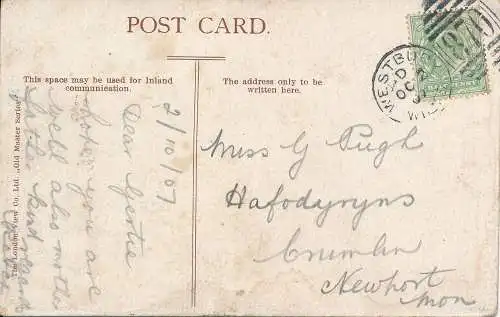 POST CARD.
This space may be used for Inland
communication.
The address only to be
written here.
2/10/07
Dear Gertie
hope you are
well also mother
father kind
The London View Co. Ltd. „Old Master Series"
Miss G Pugh
Hafodyrynys
Crumlin
Newport
Mon
WESTBU
OC 2